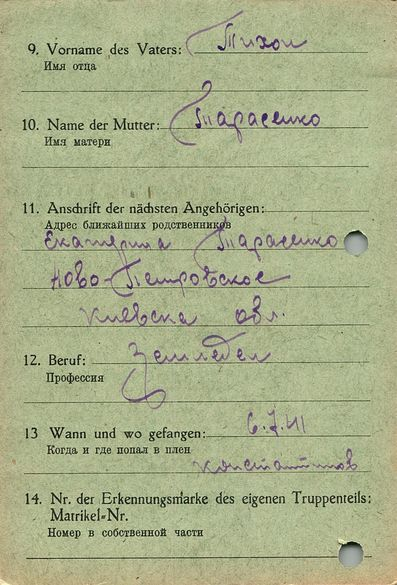 9. Vorname des Vaters: Тихон
Имя отца
10. Name der Mutter: Тарасенко
Имя матери
11. Anschrift der nächsten Angehörigen:
Адрес ближайших родственников
Екатерина Тарасенко
Ново-Петровское
Киевска обл.
12. Beruf: Землебел
Профессия
13 Wann und wo gefangen: 6.7.41
Когда и где попал в плен
Константинов
14. Nr. der Erkennungsmarke des eigenen Truppenteils:
Matrikel-Nr.
Номер в собственной части